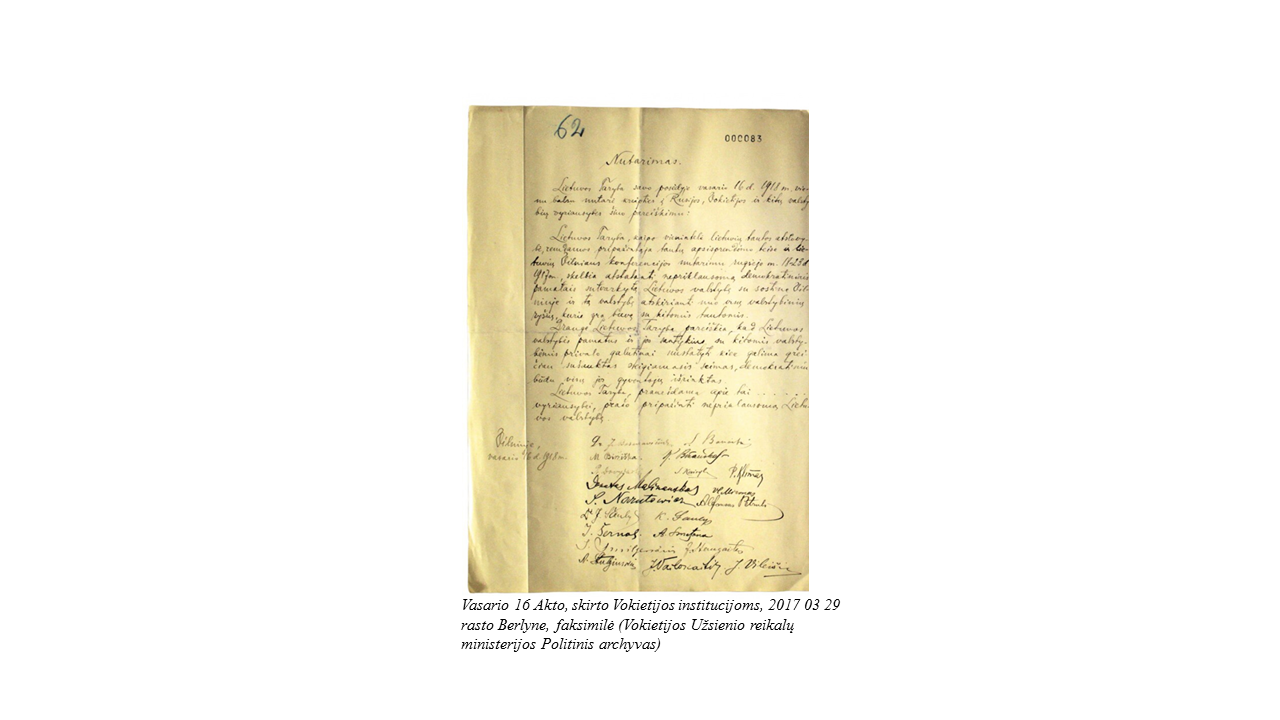 62
000083
Nutarimas.
Lietuvos Taryba savo posėdyje vasario 16 d. 1918 m. vie-
nu balsu nutarė kreiptis į Rusijos, Vokietijos ir kitų valsty-
bių vyriausybes šiuo pareiškimu:
Lietuvos Taryba, kaipo vienintelė lietuvių tautos atstovy-
bė, remdamos pripažintąja tautų apsisprendimo teise ir lie-
tuvių Vilniaus konferencijos nutarimu rugsėjo m. 18-23 d.
1917 m., skelbia atstatanti nepriklausomą demokratiniais
pamatais sutvarkytą Lietuvos valstybę su sostine Vil-
niuje ir tą valstybę atskirianti nuo visų valstybinių
ryšių, kurie yra buvę su kitomis tautomis.
Drauge Lietuvos Taryba pareiškia, kad Lietuvos
valstybės pamatus ir jos santykius su kitomis valsty-
bėmis privalo galutinai nustatyti kiek galima grei-
čiau sušauktas steigiamasis seimas, demokratiniu
būdu visų jos gyventojų išrinktas.
Lietuvos Taryba, pranešdama apie tai . . . . . .
vyriausybei, prašo pripažinti nepriklausomą Lietu-
vos valstybę.
Vilniuje,
vasario 16 d. 1918 m.
Dr. J. Basanavičius
M. Biržiška
K. Bizauskas
P. Klimas
Donatas Malinauskas Vl. Mironas
S. Narutowicz Alfonsas Petrulis
K. Šaulys
J. Šernas A. Smetona
J. Vailokaitis J. Vileišis
Vasario 16 Akto, skirto Vokietijos institucijoms, 2017 03 29
rasto Berlyne, faksimilė (Vokietijos Užsienio reikalų
ministerijos Politinis archyvas)